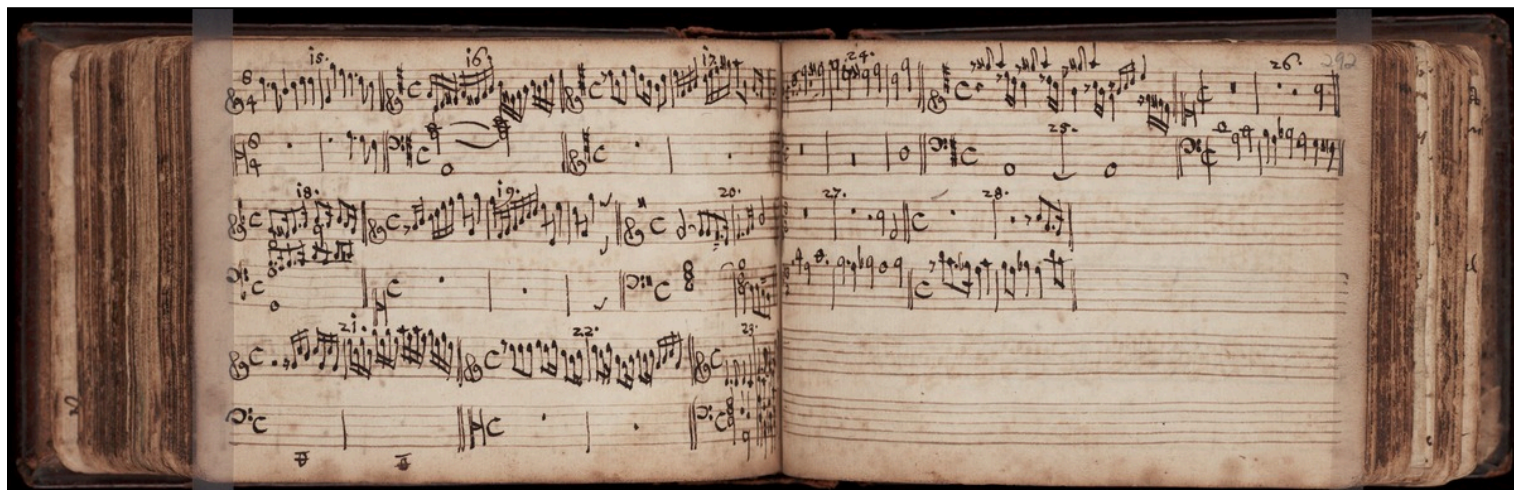 15. 16. 17. 24. 26. 292
25.
18. 19. 20. 27. 28.
21. 22. 23.